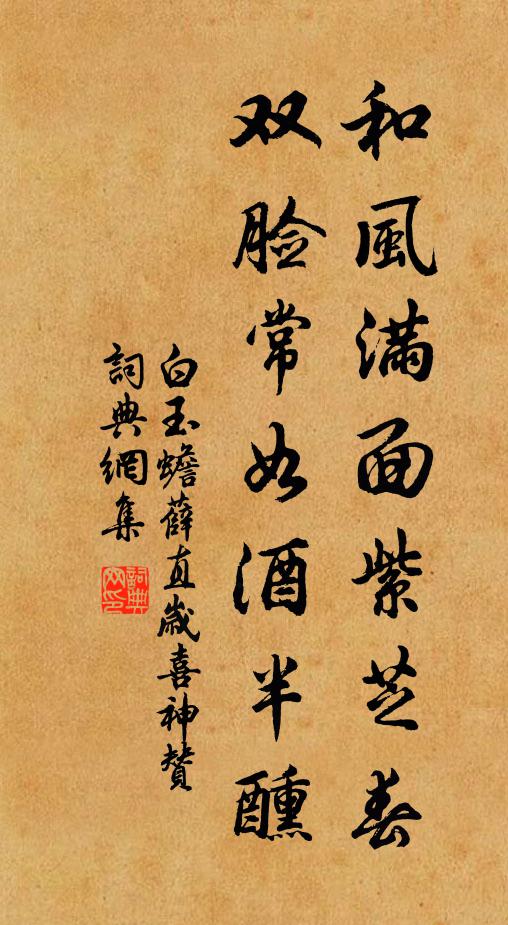 和風滿面紫芝春
双臉常如酒半醺
白玉蟾薛直歲喜神贊
詞典網集
詞典网印